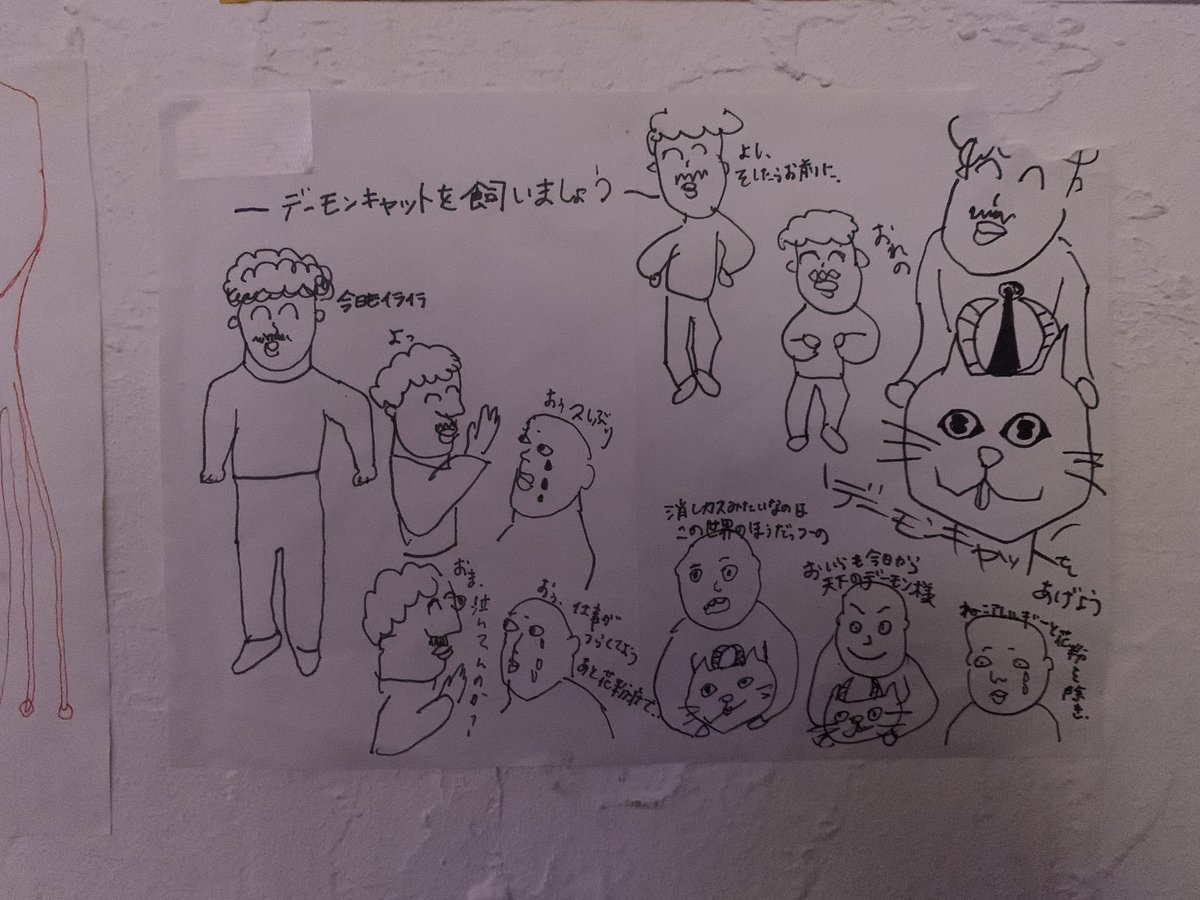 ー デーモンキャットを飼いましょう ー
今日もイライラ
よっ
おぅ久しぶり
おま、泣いてんのか?
おぅ、仕事が
つらくてよう
あと花粉症で、
よし、
そしたらお前に、
おれの
デーモンキャットを
あげよう
消しカスみたいなのは
この世界のほうだっつーの
おいらも今日から
天下のデーモン様
花粉